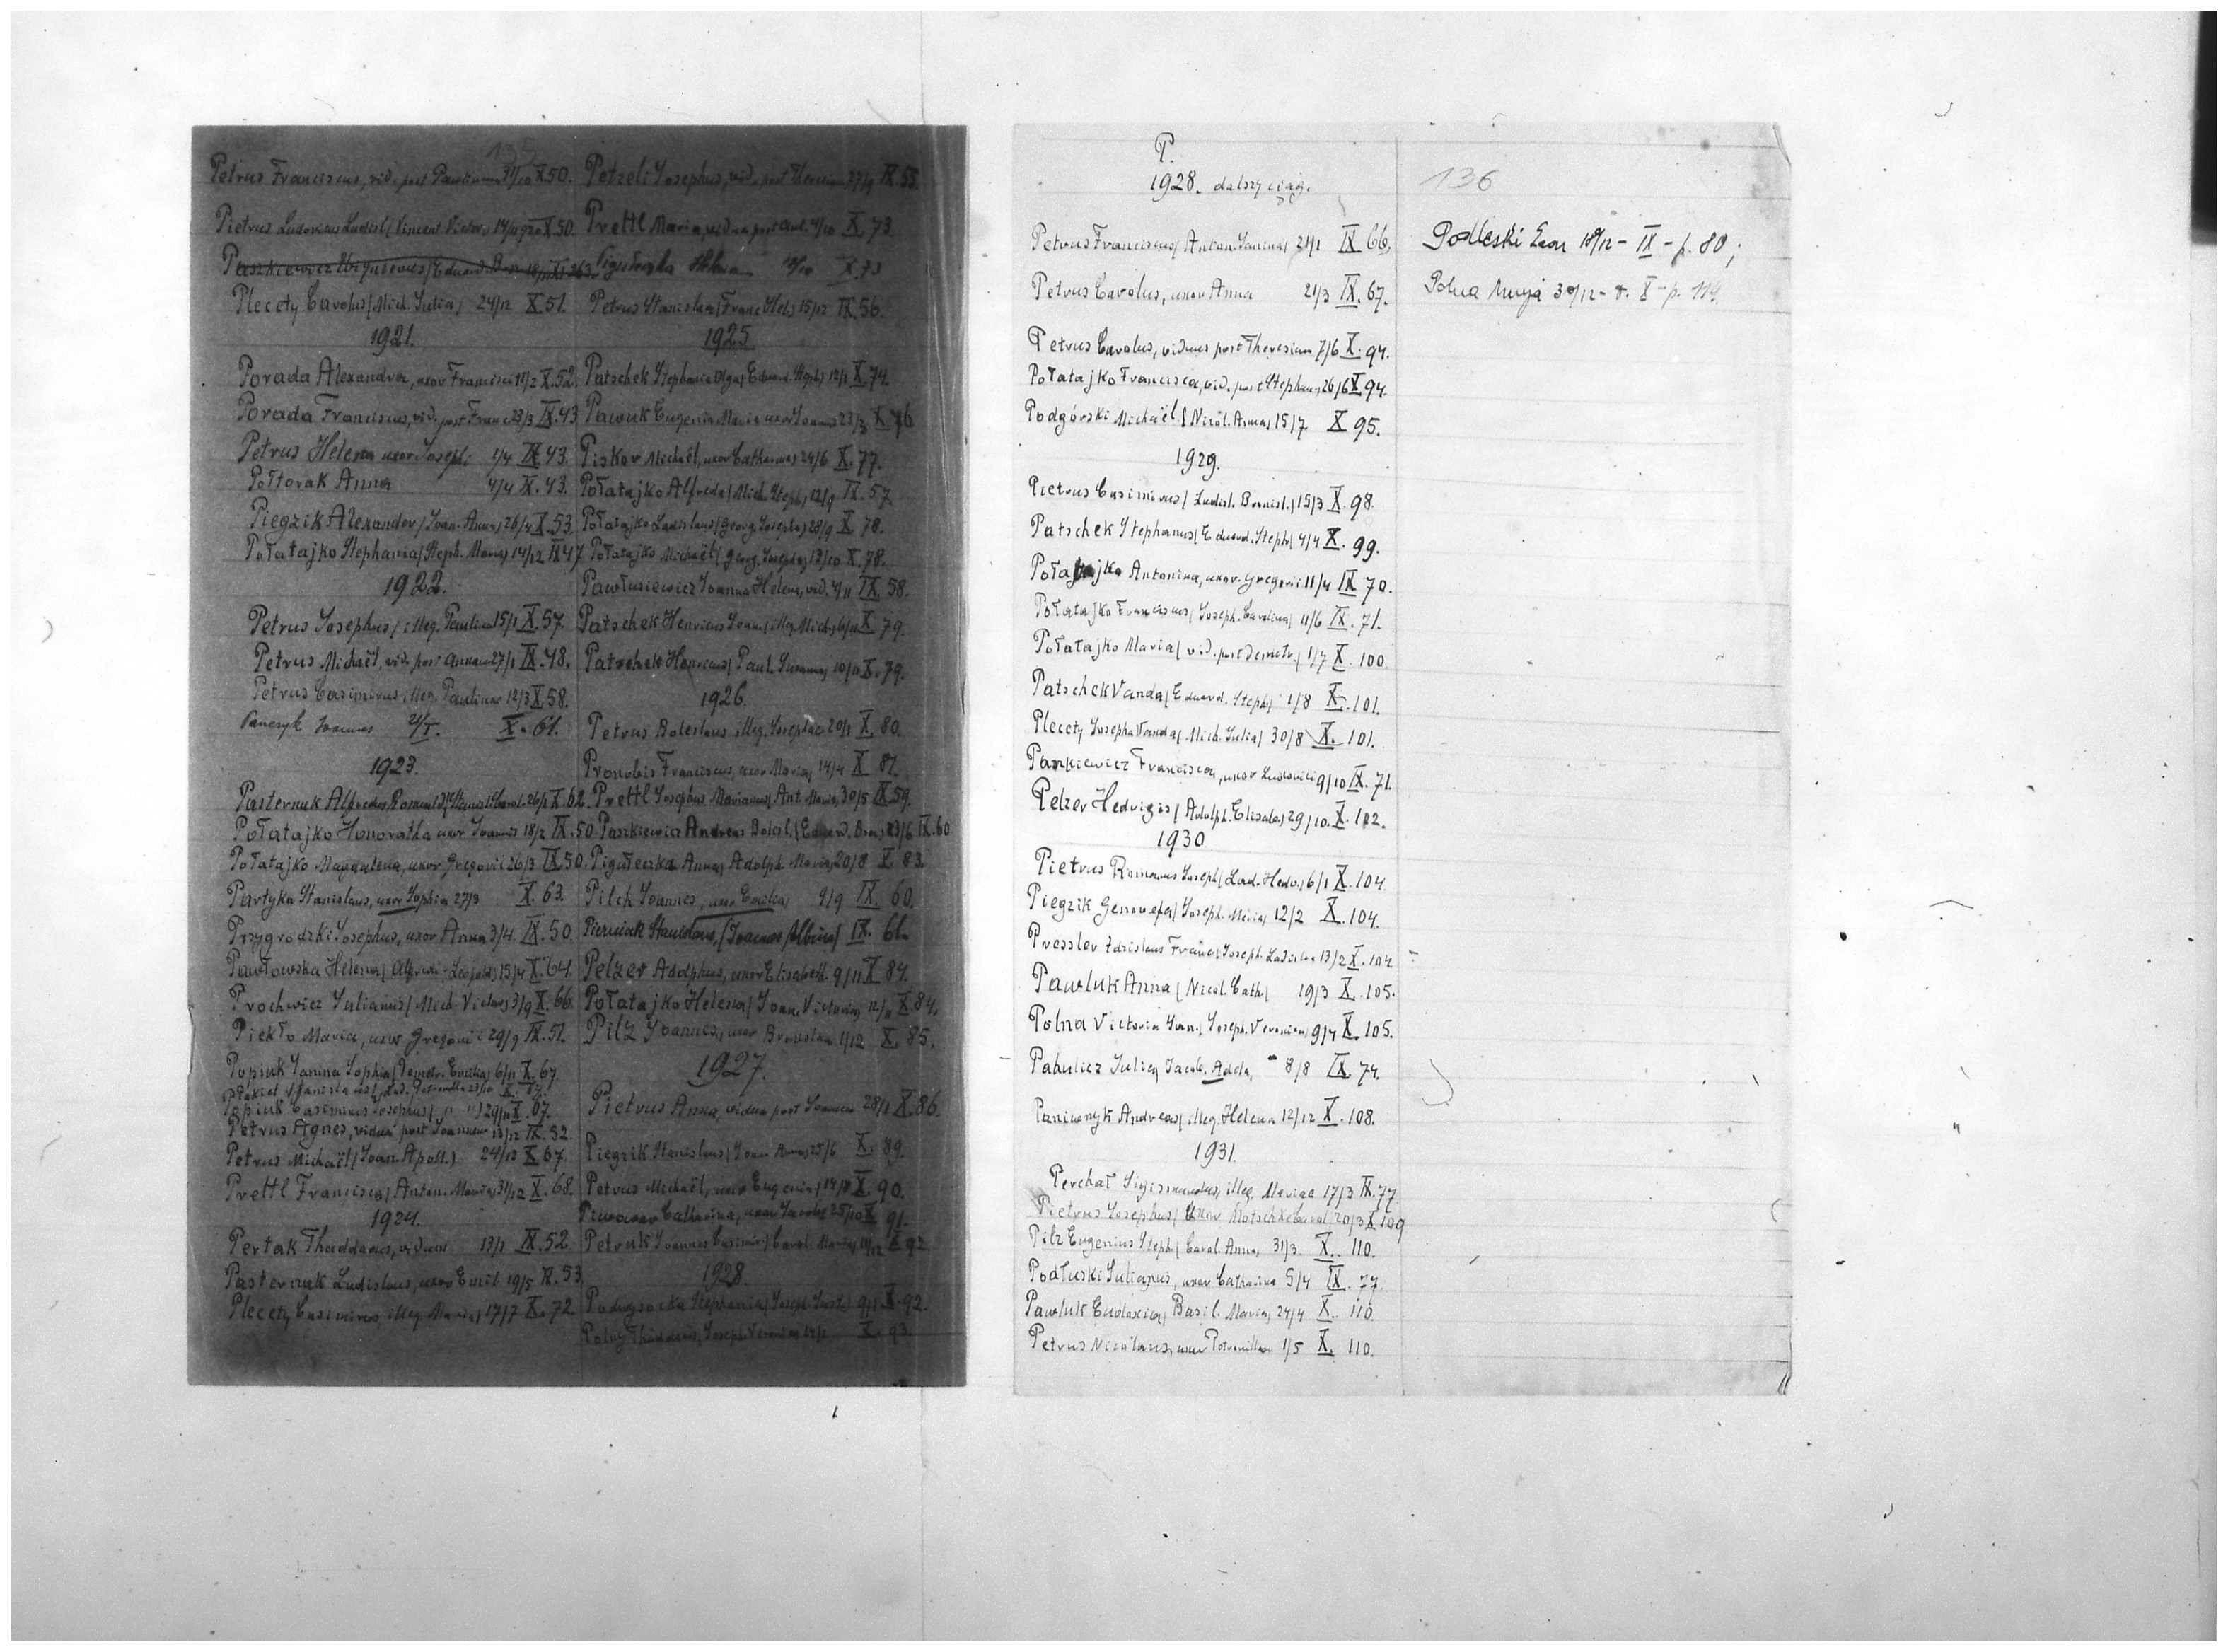 135
Petrus Franciscus, vid. post Paulinam 31/10 X.50.
Pietrus Ludovicus Ladisl./ Vincent. Victor., X.50.
Plecety Carolus/ Mich. Julia/ 24/12 X.51.
1921.
Porada Alexandra, uxor Francisci 11/2 X.52.
Porada Franciscus, vid. post Franc. 23/3 IX.43
Petrus Helena uxor Josephi 1/4 IX.43.
Połtorak Anna 4/4 IX.43.
Piegzik Alexander/ Joan. Anna/ 26/4 X.53.
Połatajko Stephania/ Steph. Maria/ 14/12 IX.47
1922.
Petrus Josephus/ illeg. Paulina 15/1 X.57.
Petrus Michaël, vid. post Annam 27/1 IX.48.
Petrus Casimirus illeg. Paulinae 12/3 X.58.
Panczyk Joannes 21/I. X. 61.
1923.
Pasternak Alfredus 26/1 X.62.
Połatajko Honoratha uxor Joannis 18/2 IX.50.
Połatajko Magdalena, uxor Gregorii 26/3 IX.50.
Partyka Stanislaus, uxor Sophia 27/3 X.63.
Przygrodzki Josephus, uxor Anna 3/4 IX.50.
Pawłowska Helena/ Alfred. Leopold./ 15/4 X.64.
Prochwicz Julianus/ Mich. Victor./ 3/9 X.66.
Piekło Maria, uxor Gregorii 29/9 IX.51.
Popiuk Janina Sophia/ Demetr. Emilia/ 6/11 X.67.
Popiuk Casimirus Josephus/ " "/ 29/11 X.67.
Petrus Agnes, vidua post Joannem 13/12 IX.52.
Petrus Michaël/ Joan. Apoll./ 24/12 X.67.
Prettl Francisca/ Anton. Maria/ 31/12 X.68.
1924.
Pertak Thaddaeus, viduus 13/1 IX.52
Pasternak Ladislaus, uxor Emil. 19/5 IX.53.
Plecety Casimirus, illeg. Maria/ 17/7 X.72.
Petzeli Josephus, vid. post IX.55.
Prettl Maria, vidua post Ant. 4/10 X.73.
Pigułeczka Helena X.73
Petrus Stanislaus/ Franc. Hel./ 15/12 IX.56.
1925
Patschek Stephania Olga/ Eduard. Steph./ 12/1 X.74.
Pawuk Eugenia Maria uxor Joannis 23/3 X.76
Piskor Michaël, uxor Catharina/ 24/6 X.77.
Połatajko Alfreda/ Mich. Steph./ 12/9 IX.57.
Połatajko Ladislaus/ Georg. Josepha/ 28/9 X.78.
Połatajko Michaël/ Georg. Josepha/ 13/10 X.78.
Pawłusiewicz Joanna Helena, vid. 4/11 IX.58.
Patschek Henricus Joan./ illeg. Mich./ 6/11 X.79.
Patschek Henricus/ Paul. Susanna/ 10/11 X.79.
1926.
Petrus Boleslaus illeg. Josephae 20/1 X.80.
Pronobis Franciscus, uxor Maria/ 14/4 X 81.
Prettl Josephus Marianus/ Ant. Maria/ 30/5 IX.59.
Paszkiewicz Andreas Bolesl./ Eduard. Bron./ 23/6 IX.60
Pigułeczka Anna/ Adolph. Maria/ 20/8 X 83.
Pilch Joannes, uxor Emilia/ 9/9 IX. 60.
Pierniak Stanislaus, /Joannes Albina/ IX. 61.
Pelzer Adolphus, uxor Elisabeth. 9/11 X.84.
Połatajko Helena/ Joan. Victoria/ 12/11 X.84.
Pilz Joannes, uxor Bronislava 1/12 X. 85.
1927.
Pietrus Anna, vidua post Joannem 28/1 X.86.
Piegzik Stanislaus/ Joan. Anna/ 25/6 X. 89.
Petrus Michaël, uxor Eugenia/ 14/8 X.90.
Catharina, uxor Jacobi 25/10 X 91.
Petruk Joannes Casimir./ Carol. Maria/ X 92
1928.
Podwysocka Stephania/ Joseph. Just./ 9/1 X.92.
Polny Thaddaeus, Joseph. Veronica X. 93.
P.
1928. dalszy ciąg.
Petrus Franciscus/ Anton. Janina/ 21/1 IX 66.
Petrus Carolus, uxor Anna 21/3 IX. 67.
Petrus Carolus, viduus post Theresiam 7/6 X. 94.
Połatajko Francisca, vid. post Stephan. 26/6 X 94.
Podgórski Michaël / Nicol. Anna/ 15/7 X 95.
1929.
Pietrus Casimirus/ Ladisl. Bronisl./ 15/3 X. 98.
Patschek Stephanus/ Eduard. Steph./ 4/4 X. 99.
Połatajko Antonina, uxor Gregorii 11/4 IX 70.
Połatajko Franciscus/ Joseph. Carolina/ 11/6 IX. 71.
Połatajko Maria/ vid. post Demetr./ 1/7 X. 100.
Patschek Vanda/ Eduard. Steph./ 1/8 X. 101.
Plecety Josepha Vanda/ Mich. Julia/ 30/8 X. 101.
Paszkiewicz Francisca, uxor Ludovici 9/10 IX. 71.
Pelzer Hedvigis/ Adolph. Elisabe./ 29/10. X. 102.
1930
Pietrus Romanus Joseph/ Lad. Hedv./ 6/1 X. 104.
Piegzik Genowefa/ Joseph. Maria/ 12/2 X. 104.
Pressler Zdzislaus Franc./ Joseph. Ladislaa 13/2 X. 104
Pawluk Anna/ Nicol. Cath./ 19/3 X. 105.
Polna Victoria Joan./ Joseph. Veronica/ 9/4 X. 105.
Pahulicz Julia/ Jacob. Adela, 8/8 IX. 74.
Paniwnyk Andreas/ illeg. Helena 12/12 X. 108.
1931.
Perchał Sigismundus, illeg. Mariae 17/3 IX. 77
Pietrus Josephus/ Uxor 20/3 X 109
Pilz Eugenius Steph./ Carol. Anna, 31/3 X. 110.
Podłuski Julianus, uxor Catharina 5/4 IX. 77.
Pawluk Eudoxia/ Basil. Maria/ 24/4 X. 110.
Petrus Nicolaus, uxor Petronilla 1/5 X. 110.
136
Podleski Leon 18/12 - IX - p. 80;
Polna Maria 30/12 - t. X - p. 114.